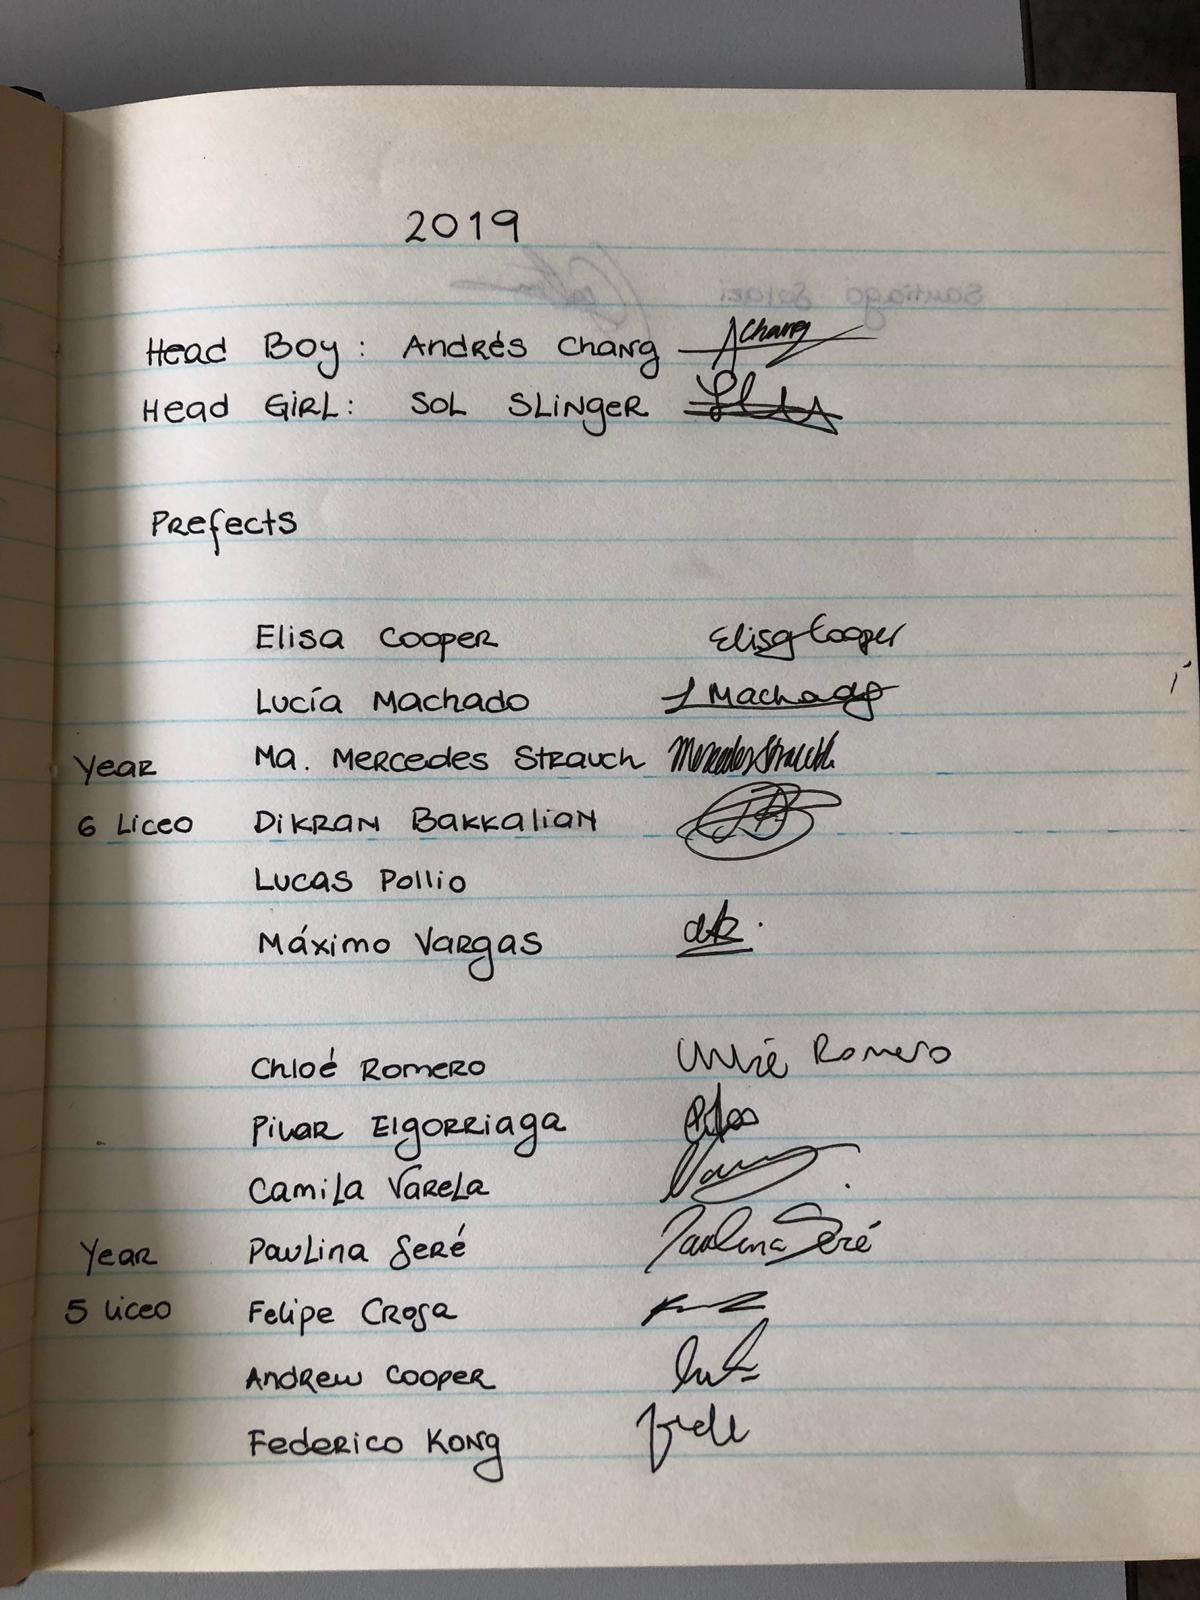 2019
Head Boy: Andrés Chang AChang
Head Girl: Sol Slinger
Prefects
Elisa Cooper Elisa Cooper
Lucía Machado L Machado
Year Ma. Mercedes Strauch Mercedes Strauch
6 Liceo Dikran Bakkalian
Lucas Pollio
Máximo Vargas
Chloé Romero Chloé Romero
Pilar Elgorriaga
Camila Varela
Year Paulina Seré Paulina Seré
5 Liceo Felipe Crosa
Andrew Cooper
Federico Kong